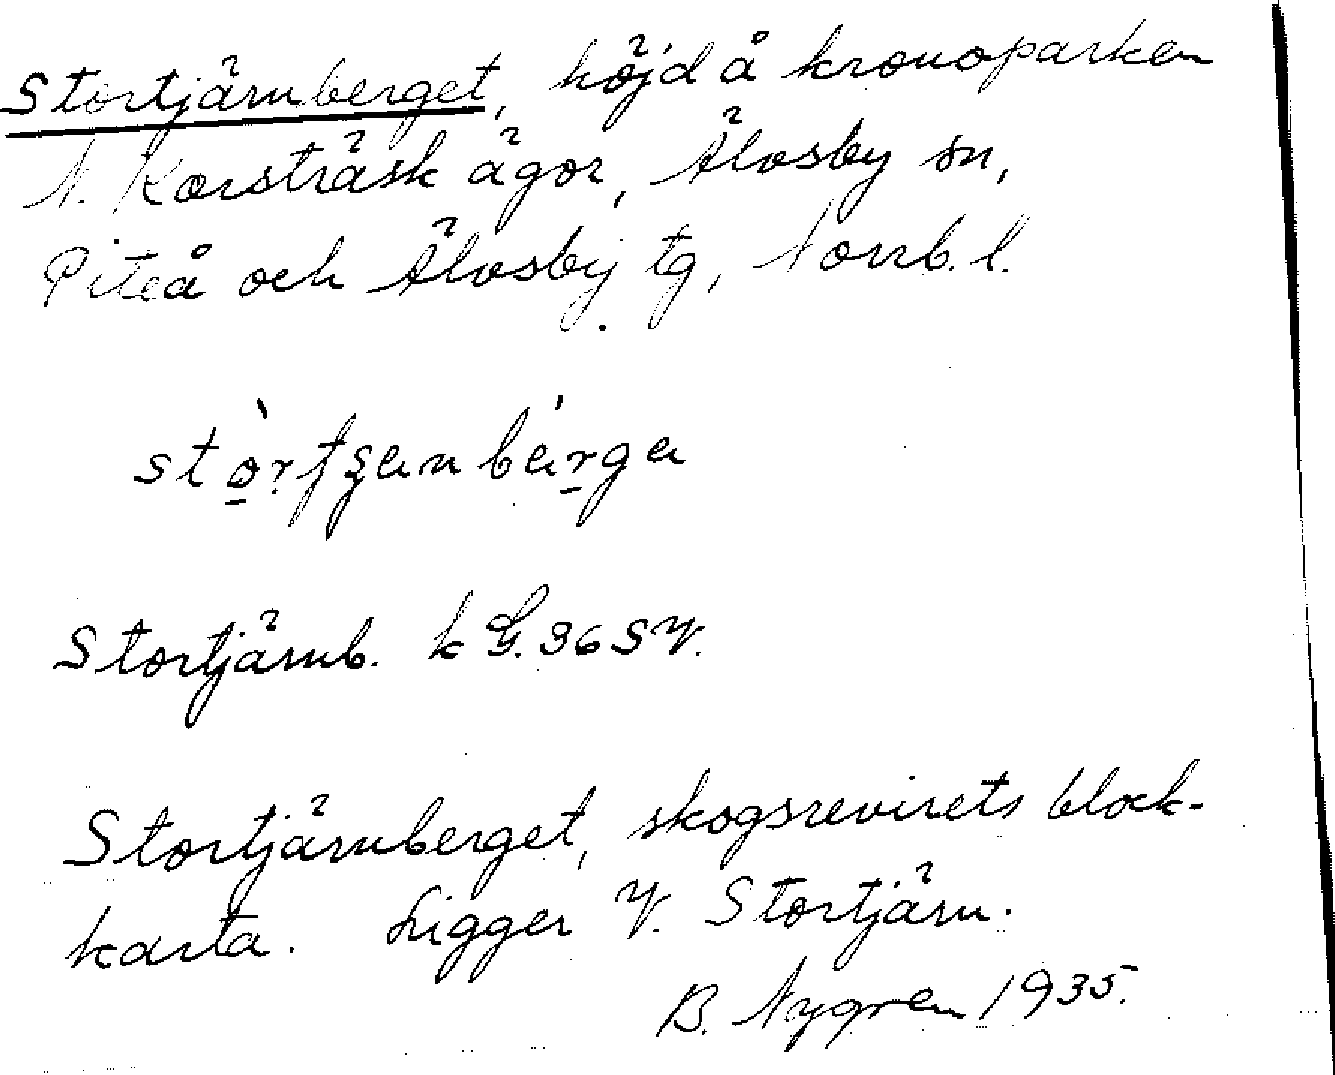 Stortjärnberget, höjd å kronoparken
N. Korsträsk ägor, Älvsby sn,
Piteå och Älvsby tg, Norrb. l.
Stortjärnb. k G. 36 SV.
Stortjärnberget, skogsrevirets block-
karta. Ligger V. Stortjärn.
B. Nygren 1935.